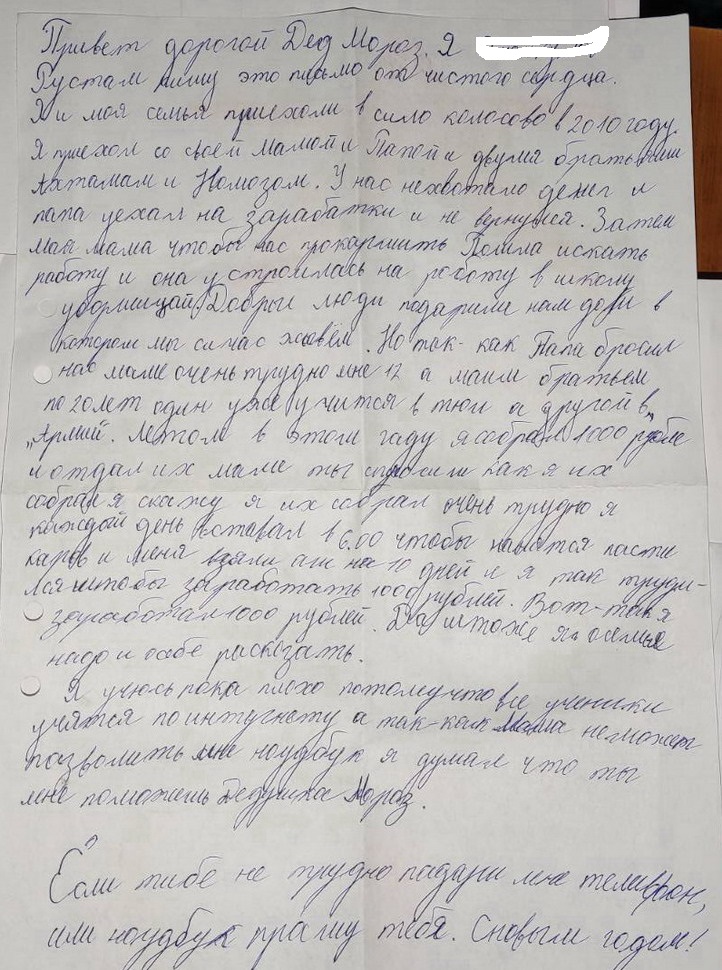 Привет дорогой Дед Мороз. Я
Рустам пишу это письмо от чистого сердца.
Я и моя семья приехали в сило колосово в 2010 году.
Я приехол со своей мамой и Папой и двумя братьями
Ахтамам и Номозом. У нас нехватало денег и
папа уехал на зарабатки и не вернулся. Затем
май мама чтобы нас прокармить Пошла искать
работу и она устроилась на роботу в школу
уборщицай. Добрыи люди подарили нам дом в
котором мы сичас живём. Но так-как Папа бросил
нас маме очень трудно мне 12 а маим братьем
по 20 лет один уже учится в а другой в
"Армий. Летом в этом гаду я собрал 1000 рубле
и отдал их маме ты спросиш как я их
собрал я скажу я их собрал очень трудно я
каждый день вставал в 6.00 чтобы пасти
каров и меня взяли аш на 10 дней и я так труди-
лся штобы заработать 1000 рублей. Вот-так я
заработал 1000 рублей. Да штоже я о семье
надо и осебе расказать.
Я учюсь пока плохо потомучто все ученики
учятся по интугнету а так-как Мама неможет
позволить мне ноудбук я думал что ты
мне поможешь Дедушка Мороз.
Если тибе не трудно падари мне телифон,
или ноудбук прашу тебя. Сновым годом!